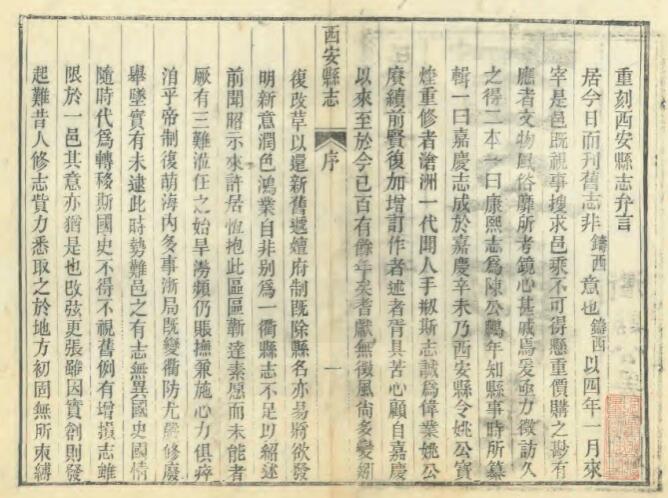 重刻西安縣志弁言
居今日而刊舊志非鑄西意也鑄西以四年一月來
宰是邑既視事搜求邑乘不可得懸重價購之尠有
應者文物風俗靡所考鏡心甚戚焉爰亟力徵訪久
之得二本一曰康熙志爲陳公鵬年知縣事時所纂
輯一曰嘉慶志成於嘉慶辛未乃西安縣令姚公寶
煃重修者滄洲一代聞人手刱斯志誠爲偉業姚公
賡續前賢復加增訂作者述者胥具苦心顧自嘉慶
以來至於今已百有餘年矣耆獻無徵風尚多變紹
西安縣志
序
一
復改草以還新舊遞嬗府制既除縣名亦易將欲發
明新意潤色鴻業自非别爲一衢縣志不足以紹述
前聞昭示來許居恆抱此區區蘄達素愿而未能者
厥有三難涖任之始旱潦頻仍賑撫兼施心力俱瘁
洎乎帝制復萌海内多事浙局既變衢防尤嚴修廢
舉墜實有未逮此時勢難邑之有志無異國史國情
隨時代爲轉移斯國史不得不視舊例有增損志雖
限於一邑其意亦猶是也改弦更張雖因實創則發
起難昔人修志貲力悉取之於地方初固無所束縛